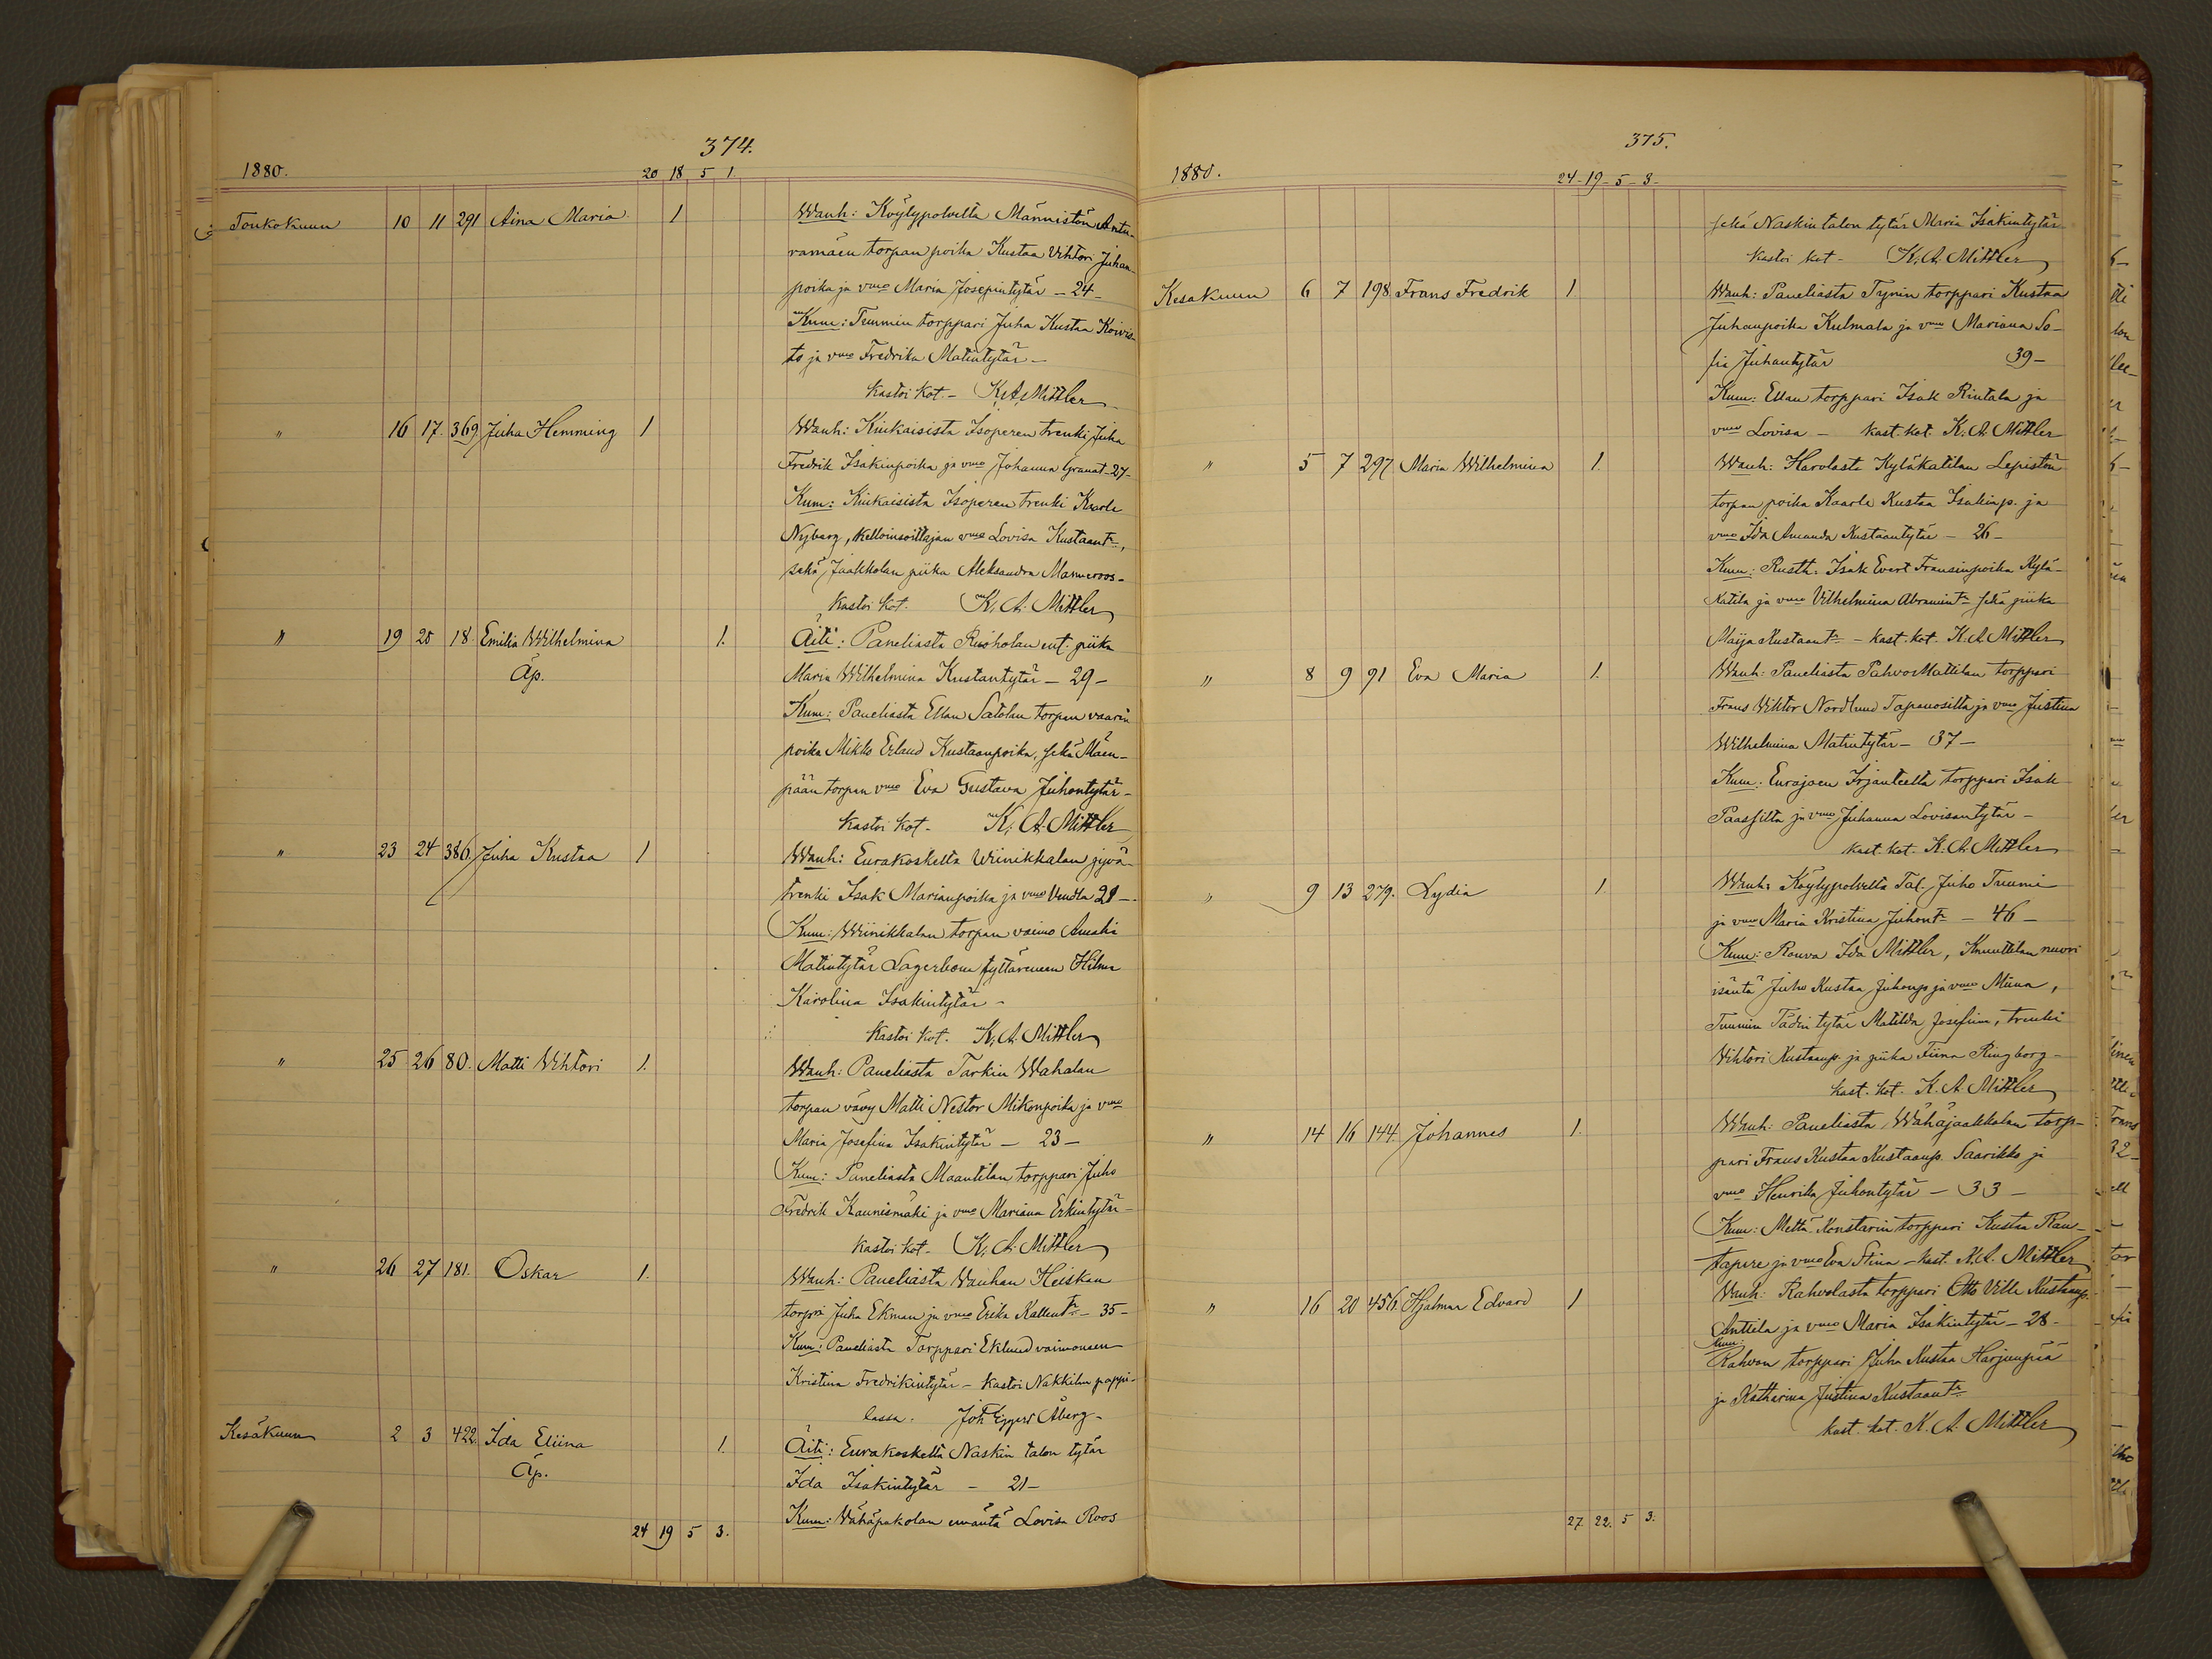 374.
1880. 20 18 5 1
Toukokuun 10 11 291 Aina Maria 1 Wanh: Köylypolvelta Männistön Antu-
ramäen torpan poika Kustaa Vihtori Juhan-
poika ja vmo Maria Josepintytär - 24 -
Kum: Tuumin torppari Juha Kustaa Koivis-
to ja vmo Fredrika Matintytär -
kastoi kot. - K. A. Mittler
" 16 17. 369 Juha Hemming 1 Wanh: Kiukaisista Isoperen trenki Juha
Fredrik Isakinpoika ja vmo Johanna Granat - 27 -
Kum: Kiukaisista Isoperen trenki Kaarle
Nyberg, Kelloinsoittajan vmo Lovisa Kustaant.,
sekä Jaakkolan piika Aleksandra Manneroos -
kastoi kot. K. A. Mittler
" 19 20 18. Emilia Wilhelmina 1. Äiti: Paneliasta Ruoholan ent. piika
Äp. Maria Wilhelmina Kustantytär - 29 -
Kum: Paneliasta Ellan Satolan torpan vaarin
poika Mikko Erland Kustaanpoika, sekä Mäen-
pään torpan vmo Eva Gustava Juhontytär -
kastoi kot - K. A. Mittler
" 23 24 386. Juha Kustaa 1 Wanh: Eurakoskelta Wiinikkalan jyvä-
trenki Isak Marianpoika ja vmo Vendla 21 -
Kum: Wiinikkalan torpan vaimo Amalia
Matintytär Lagerbom tyttärineen Hilma
Karolina Isakintytär -
kastoi kot. K. A. Mittler
" 25 26 80. Matti Vihtori 1. Wanh: Paneliasta Tarkin Wahalan
torpan vävy Matti Nestor Mikonpoika ja vmo
Maria Josefina Isakintytär - 23 -
Kum: Paneliasta Maantilan torppari Juho
Fredrik Kaunismäki ja vmo Mariana Erkintytär -
kastoi kot - K. A. Mittler
" 26 27 181. Oskar 1. Wanh: Paneliasta Vanhan Heiskan
torpri Juha Ekman ja vmo Erika Kallentr. - 35 -
Kum: Paneliasta Torppari Eklund vaimoneen
Kristina Fredrikintytär - kastoi Nakkilan pappi-
lassa. Joh Eggert Åberg -
Kesäkuun 2 3 422. Ida Eliina 1. Äiti: Eurakoskelta Naskin talon tytär
Äp. Ida Isakintytär - 21 -
Kum: Vähäpakolan emäntä Lovisa Roos
24 19 5 3.
375.
1880. 24 - 19 - 5 - 3 -
sekä Naskin talon tytär Maria Isakintytär
kastoi kot - K. A. Mittler
Kesäkuun 6 7 198. Frans Fredrik 1 Wanh: Paneliasta Tynin torppari Kustaa
Juhanpoika Kulmala ja vmo Mariana So-
fia Juhantytär 39 -
Kum: Ellan torppari Isak Rintala ja
vmo Lovisa - kast. kot. K. A. Mittler
" 5 7 297. Maria Wilhelmina 1. Wanh: Harolasta Kyläkatilan Lepistön
torpan poika Kaarle Kustaa Isakinp. ja
vmo Ida Amanda Kustaantytär - 26 -
Kum: Rusth. Isak Evert Fransinpoika Kylä-
katila ja vmo Vilhelmina Abramintr. sekä piika
Maija Kustaantr. - kast. kot. K. A. Mittler
" 8 9 91 Eva Maria 1. Wanh: Paneliasta PahvoMattilan torppari
Frans Viktor Nordlund Tapanosilta ja vmo Justina
Wilhelmina Matintytär - 37 -
Kum: Eurajoen Irjanteelta torppari Isak
Paassilta ja vmo Juhanna Lovisantytär -
kast. kot. K. A. Mittler
" 9 13 279. Lydia 1. Wanh: Köylypolvelta Tal. Juho Tuumi
ja vmo Maria Kristina Juhontr. - 46 -
Kum: Rouva Ida Mittler, Knuuttilan nuori
isäntä Juho Kustaa Juhonp ja vmo Miina,
Tuumin Tädin tytär Matilda Josefiina, trenki
Vihtori Kustaanp. ja piika Fiina Ringborg -
kast. kot. K. A. Mittler
" 14 16 144. Johannes 1. Wanh: Paneliasta Wähäjaakkolan torp-
pari Frans Kustaa Kustaanp. Saarikko ja
vmo Henrika Juhontytär - 33 -
Kum: Mettä-Konstarin torppari Kustaa Rau-
tapere ja vmo Eva Stina - kast. K. A. Mittler
" 16 20 456. Hjalmar Edvard 1 Wanh: Rahvolasta torppari Otto Ville Kustaanp.
Anttila ja vmo Maria Isakintytär - 28 -
Kum:
Rahvon torppari Juha Kustaa Harjunpää
ja Katharina Justina Kustaantr.
kast. kot. K. A. Mittler
27 22. 5 3.